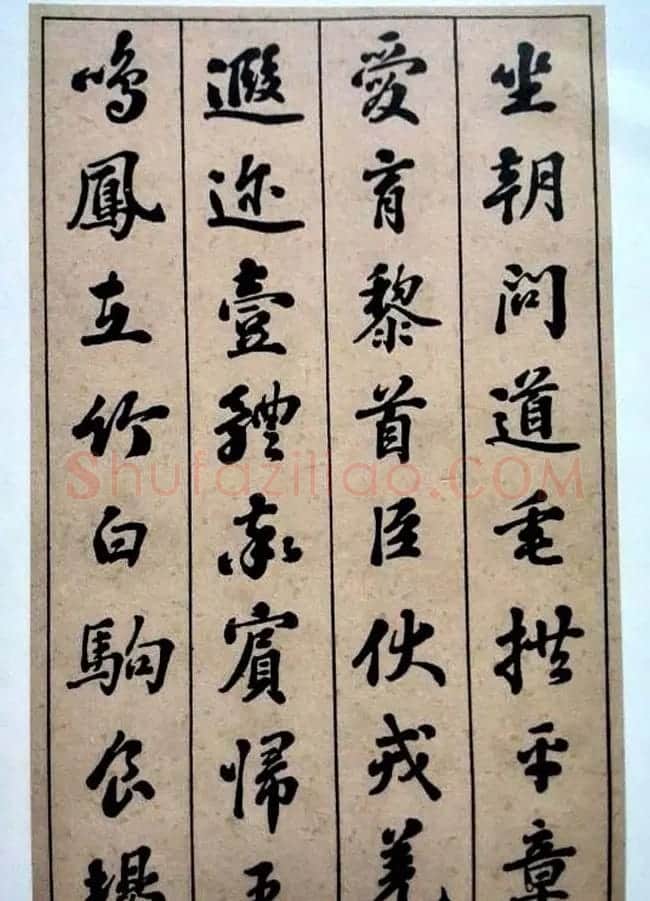 坐朝問道垂拱平章
愛育黎首臣伏戎羌
遐迩壹體率賓歸王
鳴鳳在竹白駒食場
Shufaziliao.COM